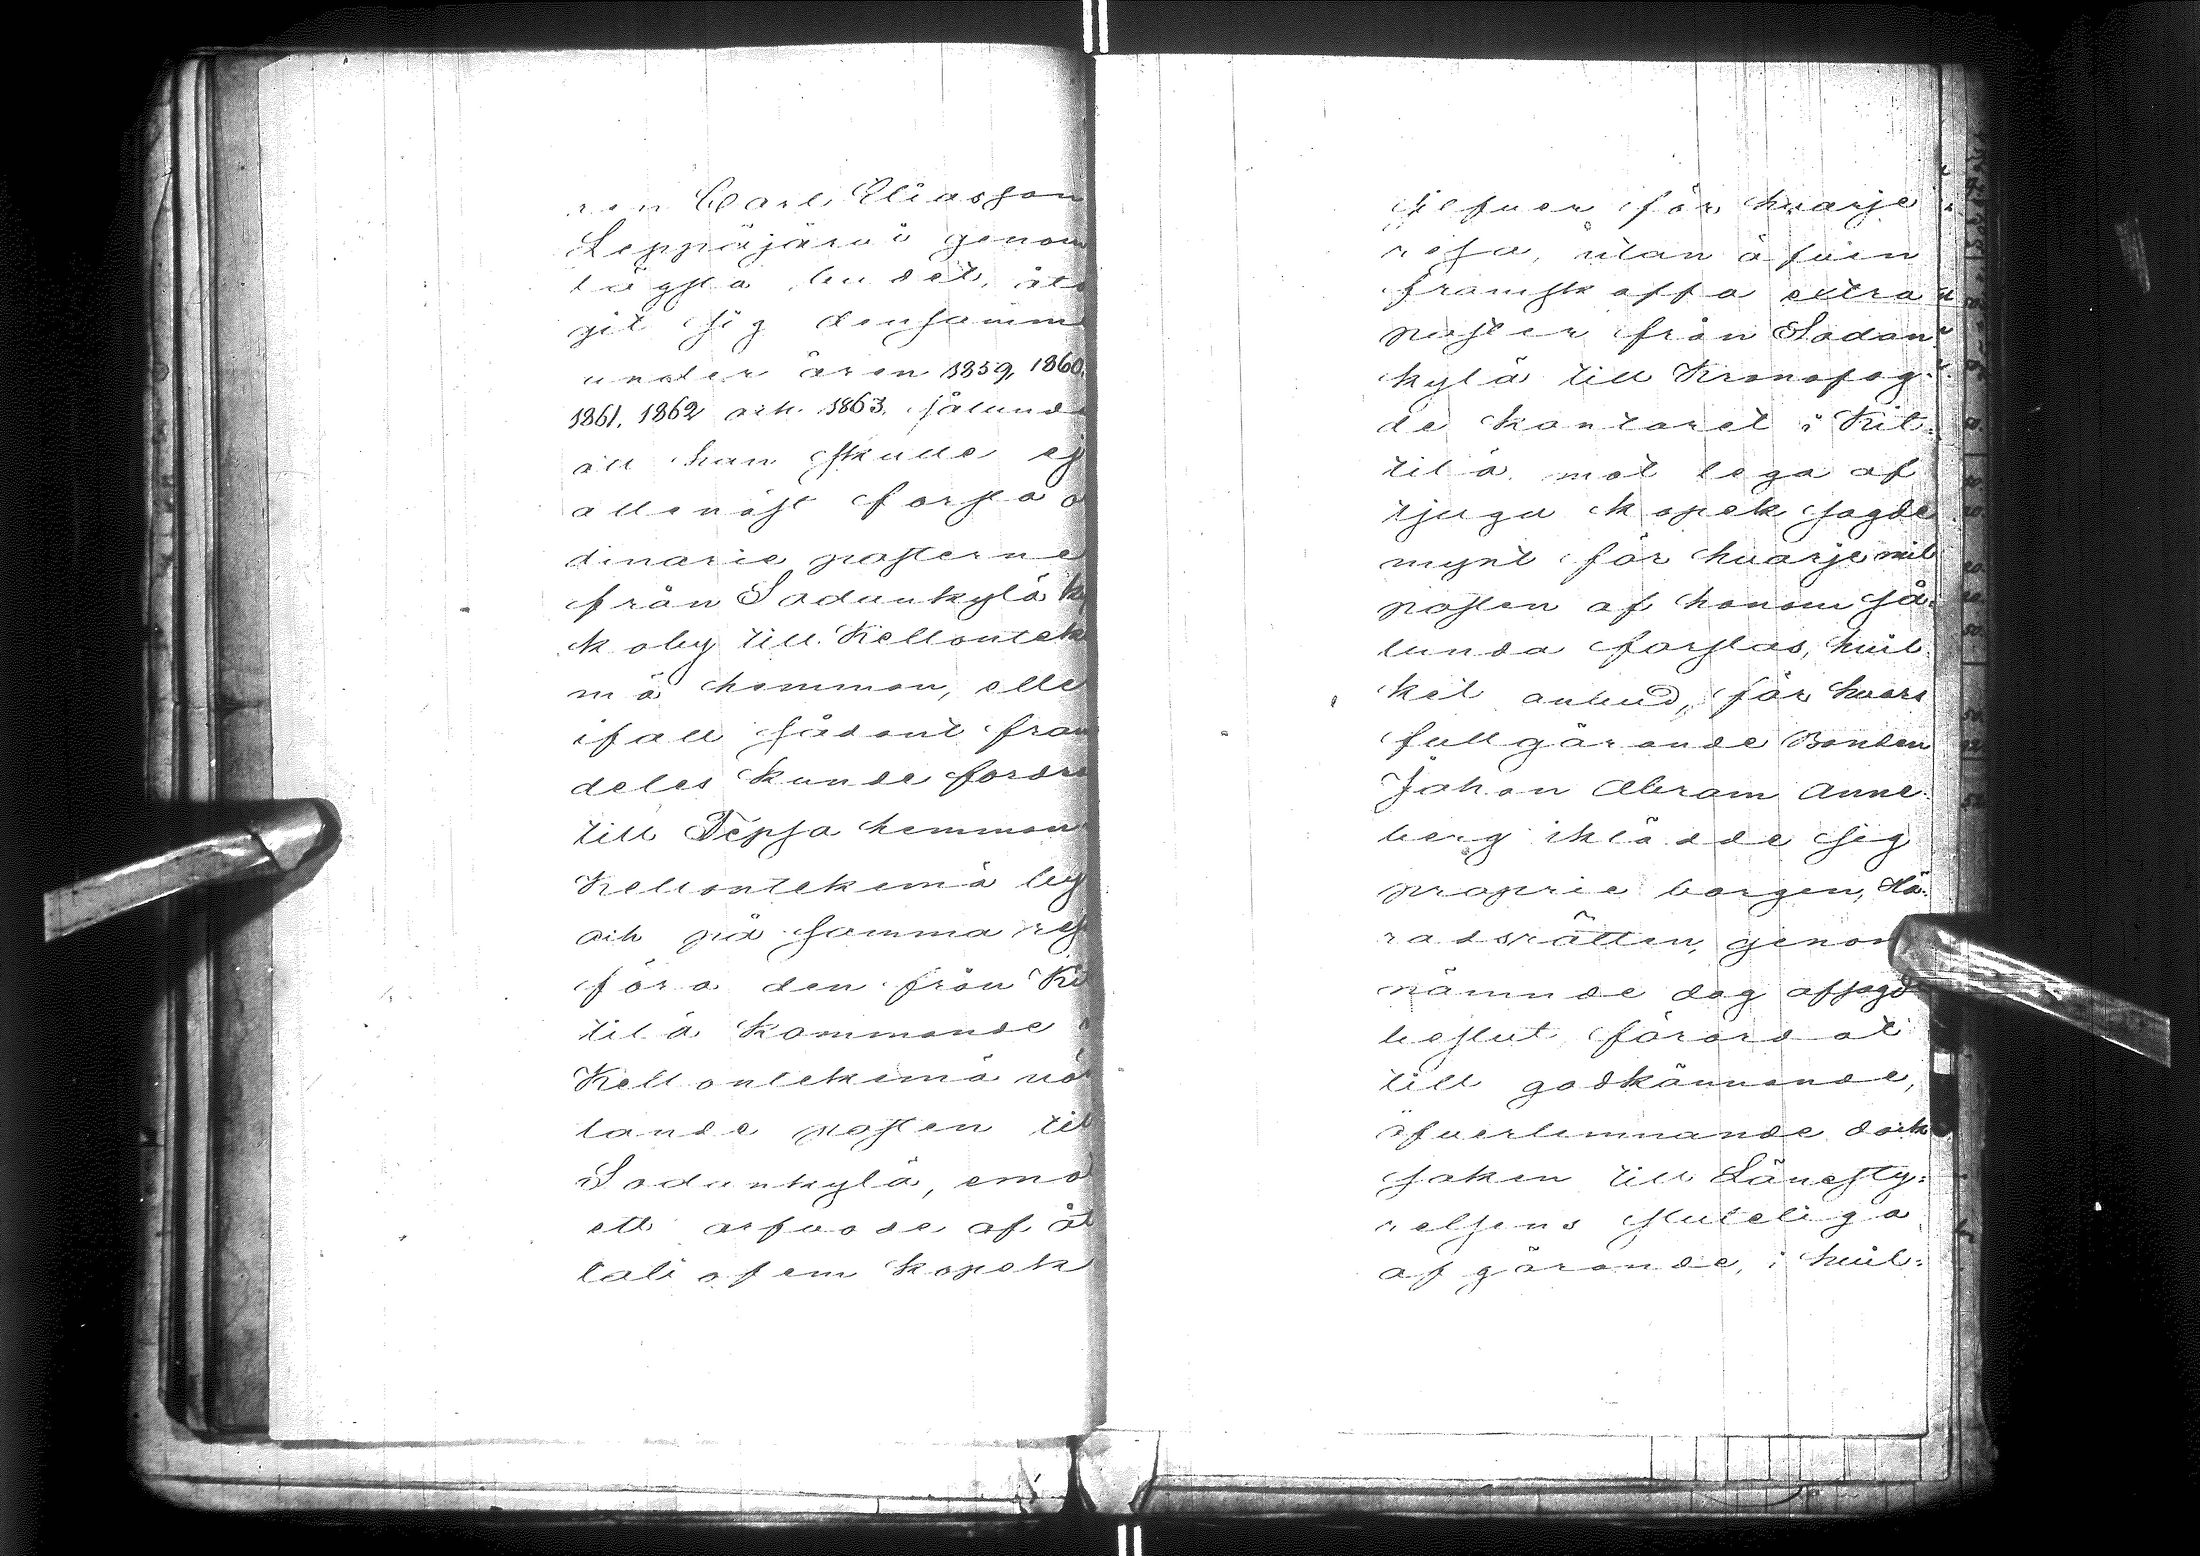 ren Carl Eliasson
Leppäjärvi genom
lägsta budet, åta
git sig densamm
under åren 1859, 1860,
1861, 1862 och 1863, sålunde
att han skulle ej
allenast forsla o
dinarie posterne
från Sodankylä ky
koby till Kellontek
mä hemman, elle
ifall sådant fram
deles kunde fordra
till Tepsa hemman
Kellontekemä by
och på samma res
föra den från Kit
tilä kommande i
Kellontekemä vän
tande posten till
Sodankylä, emo
ett arfvode af åt
tatiofem kopek
silfver för hvarje
resa, utan äfven
framskaffa extra
poster från Sodan
kylä till Kronofog-
de kontoret i Kit-
tilä mot lega af
tjugu kopek sagde
mynt för hvarje mil
posten af honom så-
lunda forslas, hvil-
ket anbud, för hvars
fullgörande Bonden
Johan Abram Anne-
berg iklädde sig
proprie borgen, Hä-
radsrätten, genom
nämnde dag afsagdt
beslut förordat
till godkännande,
öfverlemnande dock
saken till Länesty-
relsens slutliga
afgörande, i hvil-